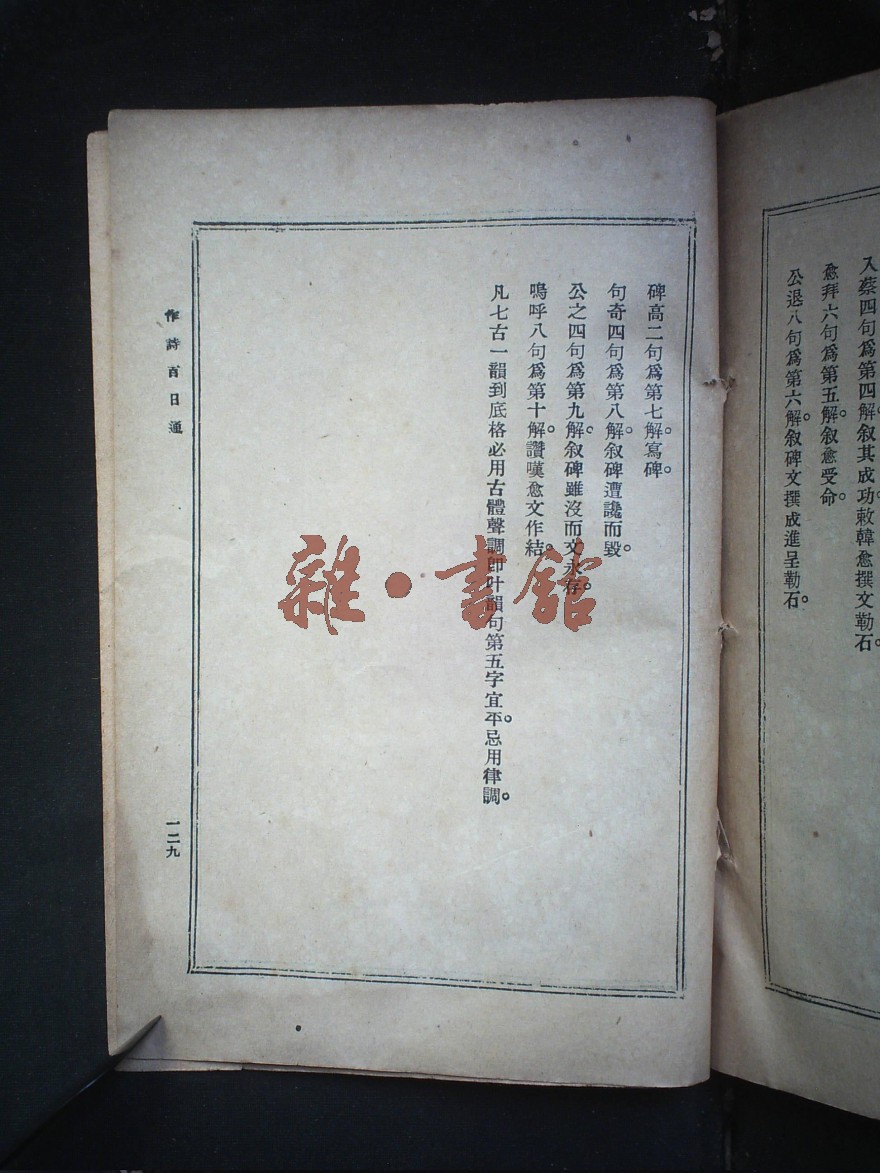 入蔡四句爲第四解。叙其成功敕韓愈撰文勒石。
愈拜六句爲第五解。叙愈受命。
公退八句爲第六解。叙碑文撰成進呈勒石。
碑高二句爲第七解。寫碑。
句奇四句爲第八解。叙碑遭讒而毀。
公之四句爲第九解。叙碑雖沒而文永存。
嗚呼八句爲第十解。讚嘆愈文作結。
凡七古一韻到底格必用古體聲調卽叶韻句第五字宜平。忌用律調。
作詩百日通
一二九
雜·書館